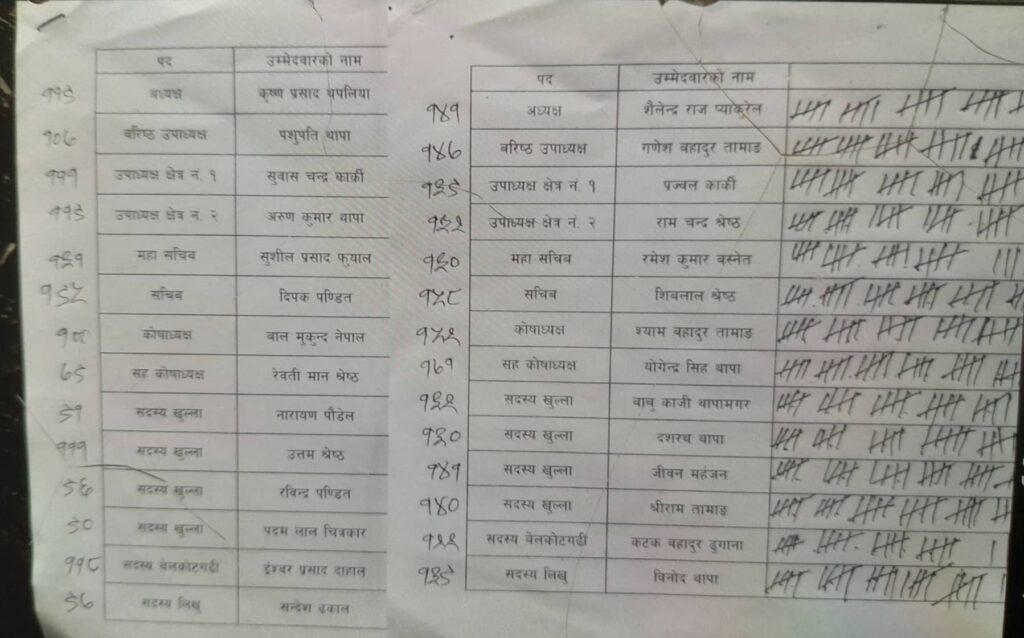 पद उम्मेदवारको नाम
अध्यक्ष कृष्ण प्रसाद थपलिया
बरिष्ठ उपाध्यक्ष पशुपति थापा
१११ उपाध्यक्ष क्षेत्र नं. १ सुवास चन्द्र कार्की
उपाध्यक्ष क्षेत्र नं. २ अरुण कुमार थापा
महा सचिब सुशील प्रसाद फुयाल
सचिब दिपक पण्डित
कोषाध्यक्ष बाल मुकुन्द नेपाल
सह कोषाध्यक्ष रेवती मान श्रेष्ठ
सदस्य खुल्ला नारायण पौडेल
१११ सदस्य खुल्ला उत्तम श्रेष्ठ
सदस्य खुल्ला रविन्द्र पण्डित
सदस्य खुल्ला पदम लाल चित्रकार
११८ सदस्य बेलकोटगढी ईश्वर प्रसाद दाहाल
सदस्य लिखु सन्देश ढकाल
पद उम्मेदवारको नाम
१४१ अध्यक्ष शैलेन्द्र राज प्याकुरेल
बरिष्ठ उपाध्यक्ष गणेश बहादुर तामाङ
उपाध्यक्ष क्षेत्र नं. १ प्रज्वल कार्की
उपाध्यक्ष क्षेत्र नं. २ राम चन्द्र श्रेष्ठ
महा सचिब रमेश कुमार बस्नेत
सचिब शिबलाल श्रेष्ठ
कोषाध्यक्ष श्याम बहादुर तामाङ
सह कोषाध्यक्ष योगेन्द्र सिंह थापा
सदस्य खुल्ला बाबु काजी थापामगर
सदस्य खुल्ला दशरथ थापा
१४१ सदस्य खुल्ला जीवन महंजन
१४० सदस्य खुल्ला श्रीराम तामाङ
सदस्य बेलकोटगढी कटक बहादुर ढुगाना
सदस्य लिखु विनोद थापा